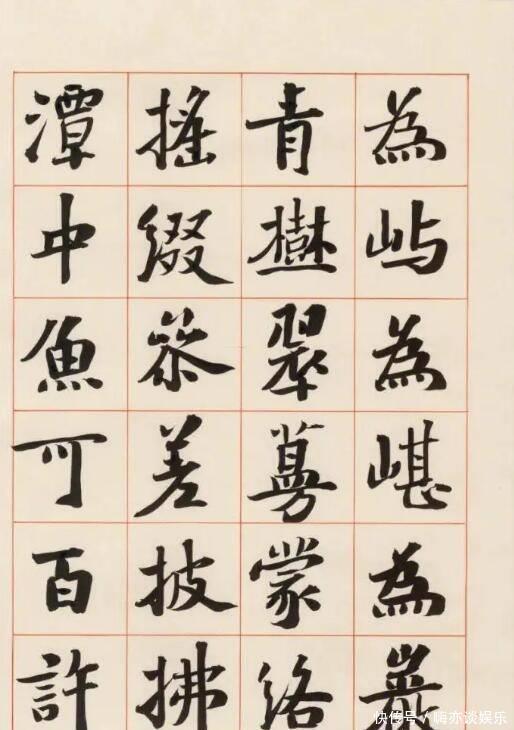 為屿為嵁為巖
青樹翠蔓蒙絡
搖綴參差披拂
潭中魚可百許
快传号／嗨亦谈娱乐